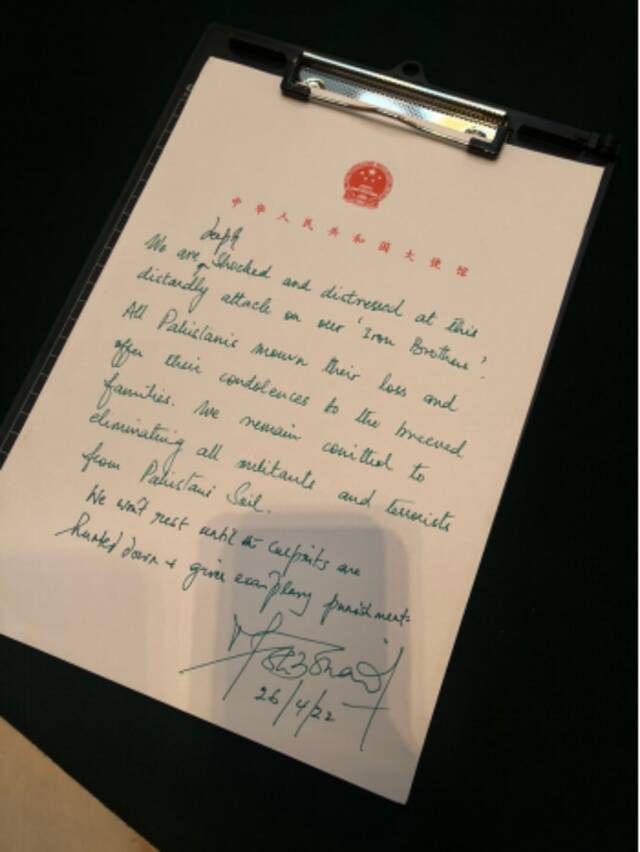 中华人民共和国大使馆
deeply
We are shocked and distressed at this
distardly attack on our 'Iron Brothers'.
All Pakistanis mourn their loss and
offer their condolences to the breeved
families. We remain comitted to
eliminating all militants and terrorists
from Pakistani Soil.
We won't rest until culprits are
hunked down + given examplary punishments
26/4/22